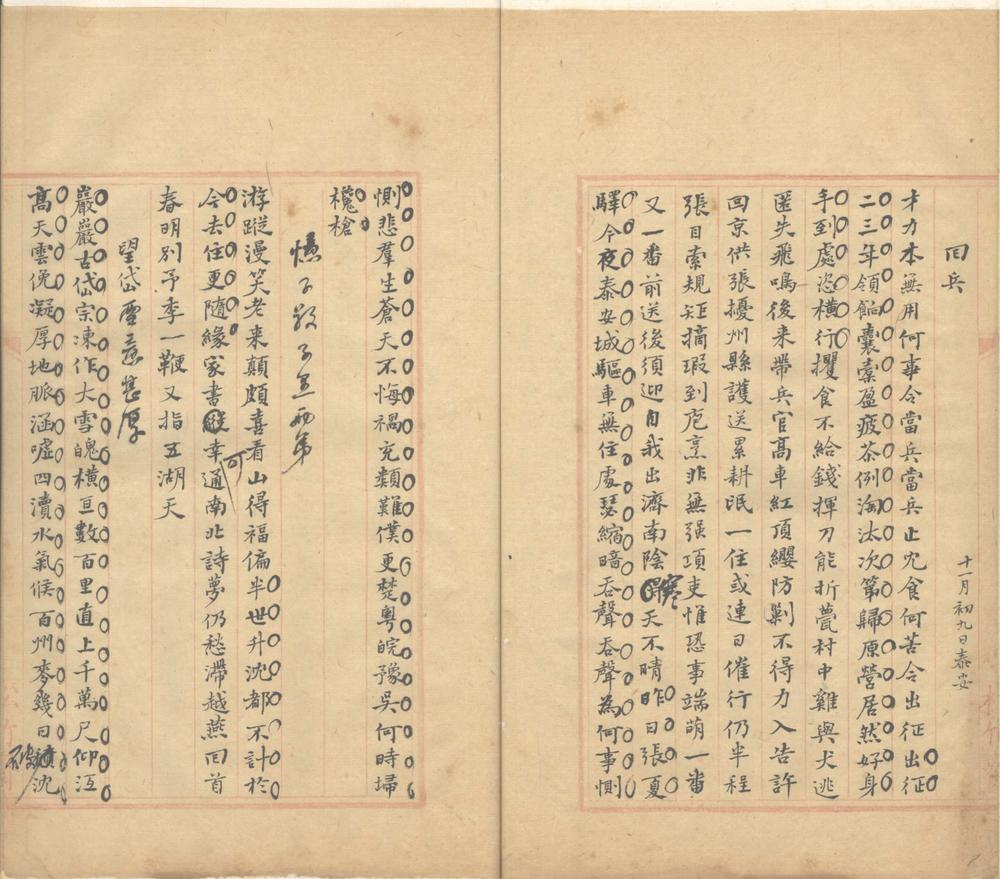 回兵
十一月初九日泰安
才力本無用何事令當兵當兵止冗食何苦令出征出征
二三年領餉囊橐盈疲苶例淘汰次第歸原營居然好身
手到處恣橫行攫食不給錢揮刀能折甍村中雞與犬逃
匿失飛鳴後來帶兵官高車紅頂纓防剿不得力入告許
回京供張擾州縣護送累耕氓一住或連日催行仍半程
張目索規矩摘瑕到庖烹非無强項吏惟恐事端萌一番
又一番前送後須迎自我出濟南陰寒天不晴昨日張夏
驛今夜泰安城驅車無住處瑟縮暗吞聲吞聲為何事惻
惻悲羣生蒼天不悔禍充類難僕更楚粵皖豫吳何時埽
欃槍
憶子敬子愚兩弟
游蹤漫笑老來顛頗喜看山得福偏半世升沈都不計於
今去住更隨緣家書幸可通南北詩夢仍愁滯越燕回首
春明别予季一鞭又指五湖天
望岱雪意甚厚
巖巖古岱宗凍作大雪魄橫亘數百里直上千萬尺仰沍
高天雲俛凝厚地脈涵噓四瀆水氣候百州麥幾日破沈